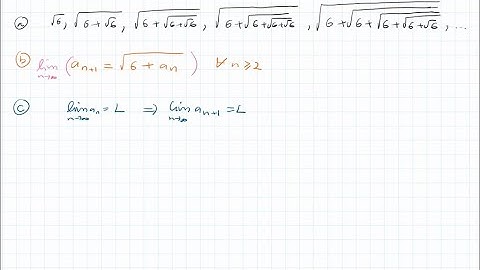 (a) √6, √(6+√6), √(6+√(6+√6)), √(6+√(6+√(6+√6))), √(6+√(6+√(6+√(6+√6)))), ...
(b) lim n→∞ (a_{n+1} = √(6 + a_n)) ∀ n ⩾ 2
(c) lim n→∞ a_n = L ⟹ lim n→∞ a_{n+1} = L